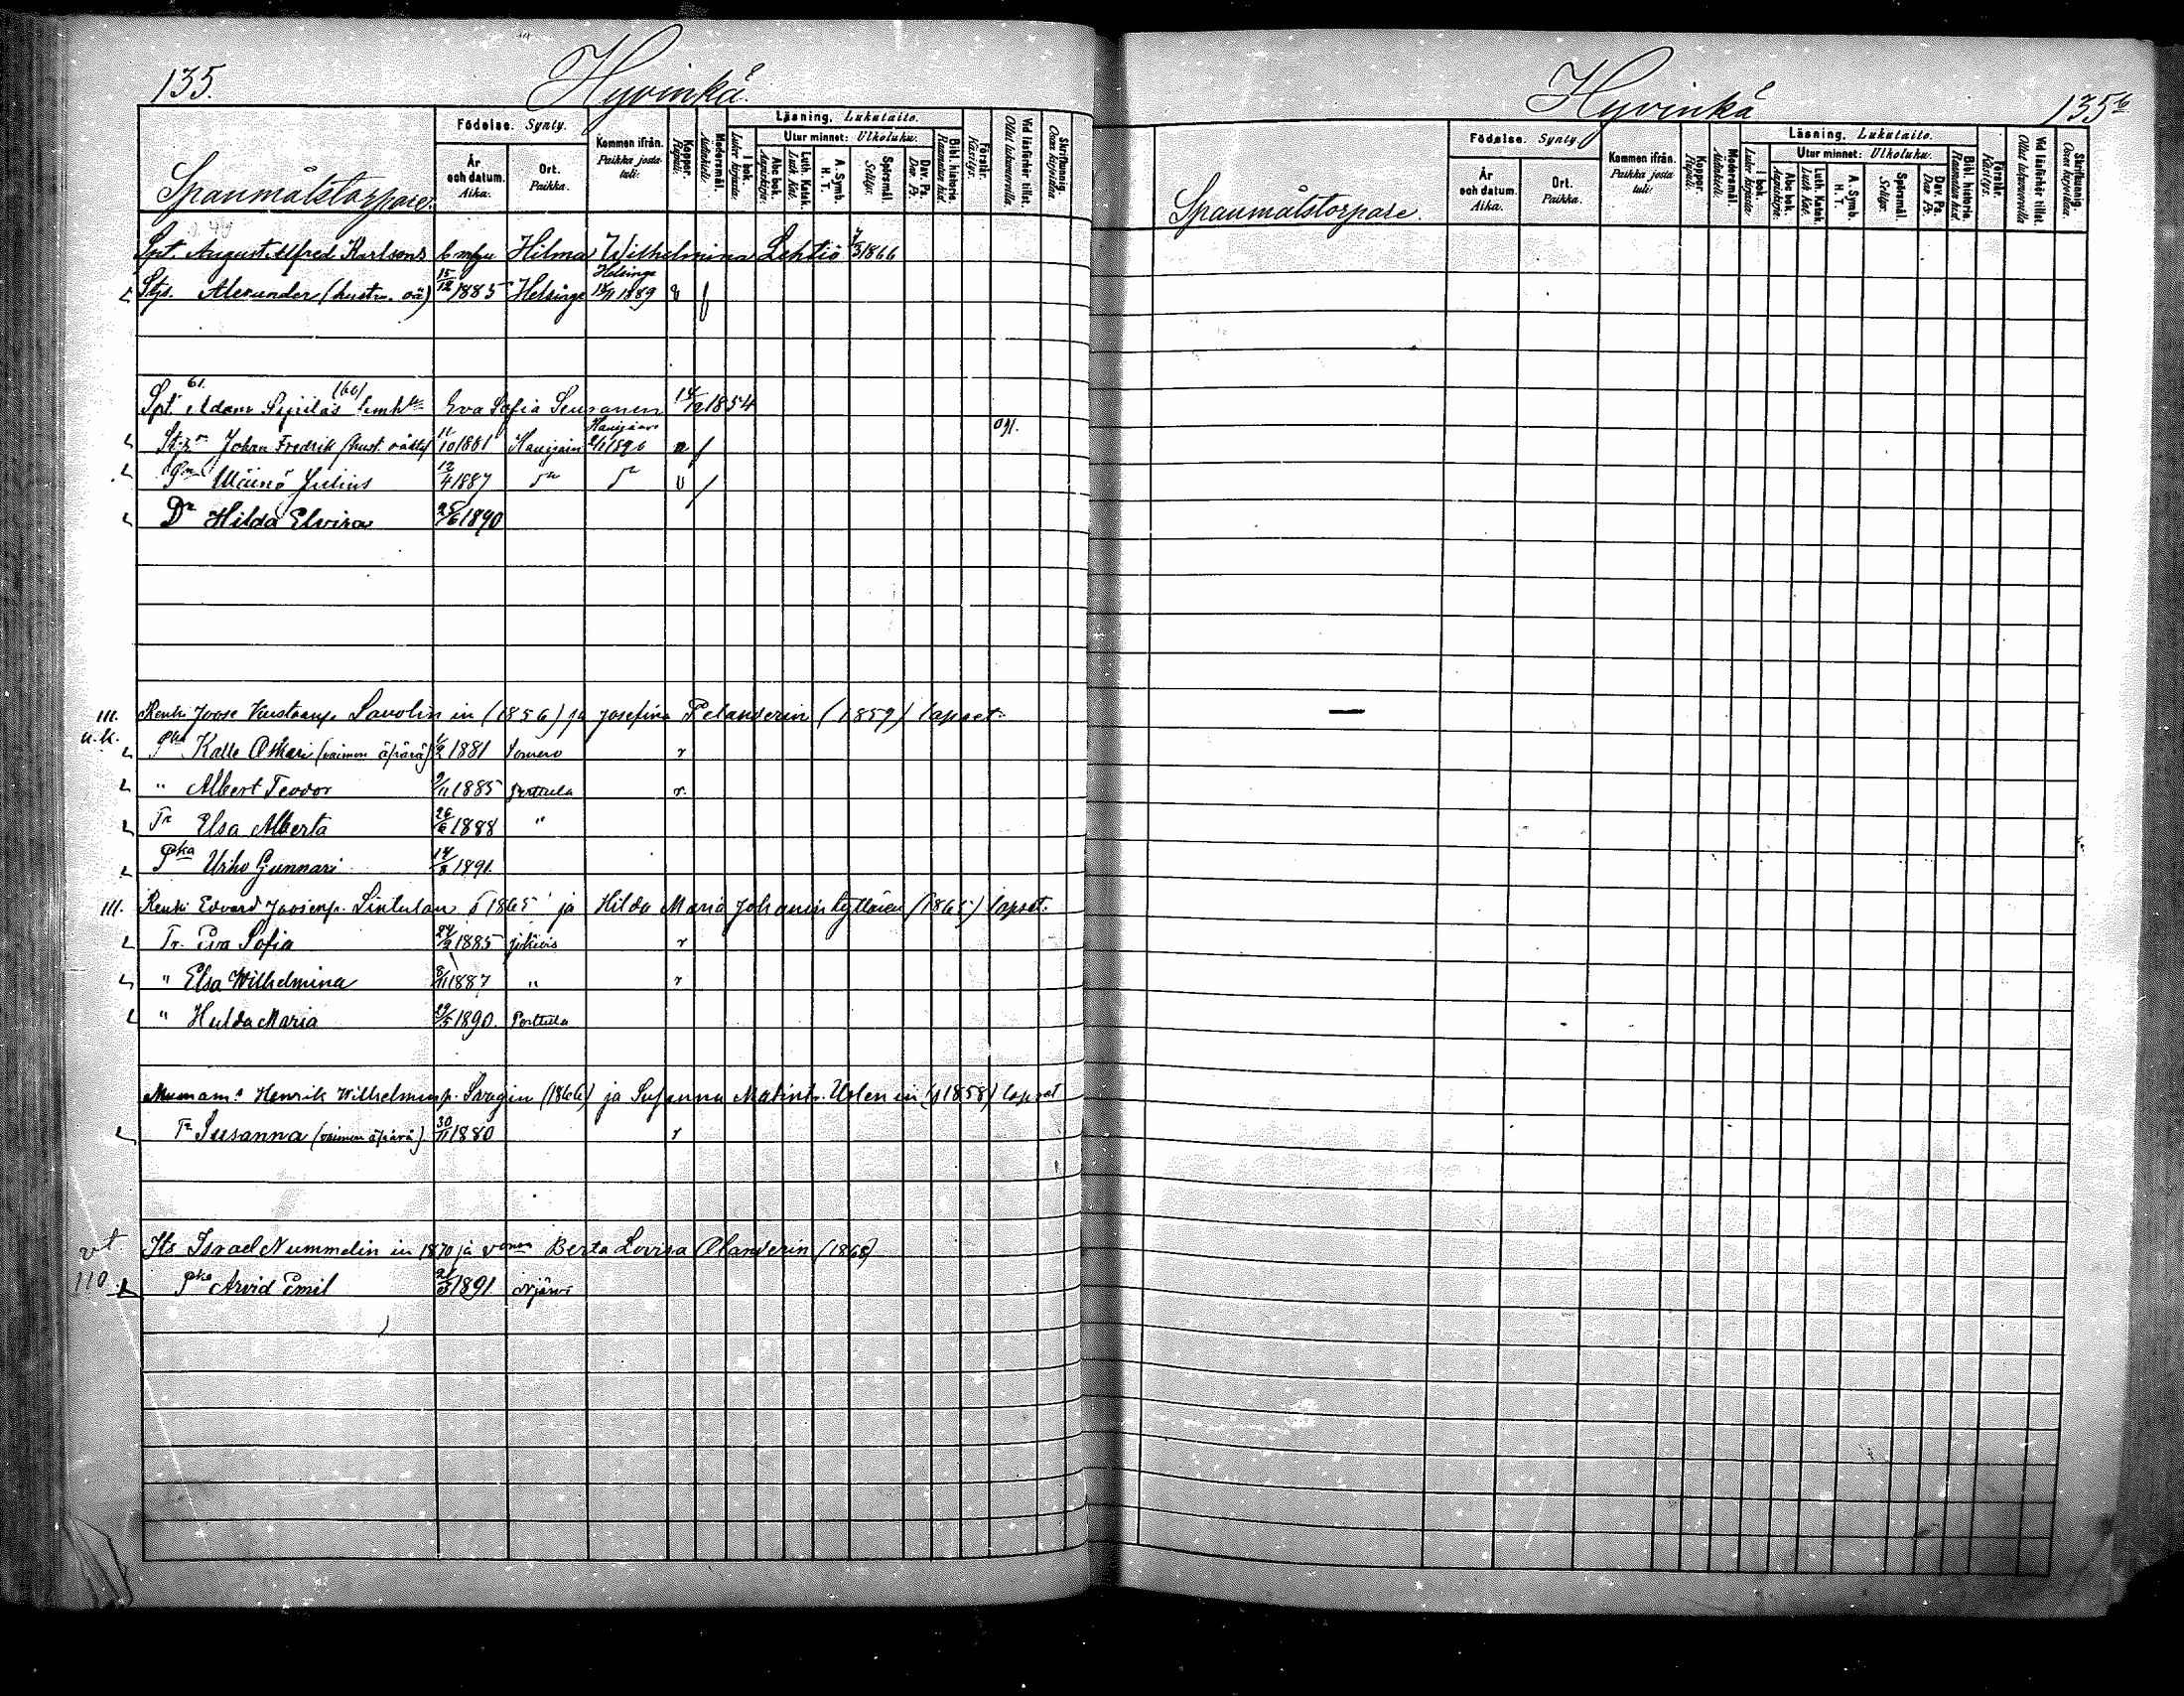 135.
Hyvinkä.
Spanmålstorpare.
Födelse. Synty.
År och datum. Aika.
Ort. Paikka.
Kommen ifrån. Paikka josta tuli:
Koppor. Rupuli.
Modersmål. Äidinkieli.
Läsning. Lukutaito.
I bok. Luku kirjasta:
Utur minnet: Ulkoluku.
Abc bok. Aapiskirja.
Luth. Katek. Luth. Kat.
A. Symb. H. T.
Spörsmål. Selitys.
Dav. Ps. Dav. Ps.
Bibl. historia. Raamatun hist.
Förstår. Käsitys.
Vid läsförhör tillst. Ollut lukuvuorolla
Skriftkunnig. Osaa kirjoittaa.
Spt. August Alfred Karlsons b mhu Hilma Wilhelmina Lehtiö 7/3 1866
Stjs. Alexander (hustru. oä) 15/12 1885 Helsinge Helsinge 1889
61. (60)
Spt. Adam Sipiläs Eva Sofia 1854
Johan Fredrik 11/10 1881 1896
Wäinö Julius 12/4 1887
Dr Hilda Elvira 25/6 1890
III. Renki Joose Kustaanp. Savolin in (1856) ja Josefina Pelanderin (1859) lapset.
u.k. Pka Kalle Oskari (vaimon äpärä) 1/2 1881 Somero r
" Albert Teodor 9/11 1885 Perttula r.
Tr Elsa Alberta 26/6 1888 "
Pka Urho Gunnari 14/3 1891.
III. Renki Edvard Joosenp. Sintulan 1865 ja Hilda Maria Johanintyttären (1865) lapset.
Tr. Eva Sofia 24/9 1885 Jokiois r
" Elsa Wilhelmina 8/11 1887 " r
" Hulda Maria 29/5 1890. Perttula
Henrik Wilhelminp. (1866) ja Susanna Matint. (1858) lapset
Tr Susanna (vaimon äpärä) 30/11 1880 r
vt Its Israel Nummelin in 1870 ja Berta Lovisa Olanderin (1868)
110. Pka Arvid Emil 21/3 1891 Njärvi
Hyvinkä
135b
Spanmålstorpare
Födelse. Synty.
År och datum. Aika.
Ort. Paikka.
Kommen ifrån. Paikka josta tuli:
Koppor. Rupuli.
Modersmål. Äidinkieli.
Läsning. Lukutaito.
I bok. Luku kirjasta:
Utur minnet: Ulkoluku.
Abc bok. Aapiskirja.
Luth. Katek. Luth. Kat.
A. Symb. H. T.
Spörsmål. Selitys.
Dav. Ps. Dav. Ps.
Bibl. historia. Raamatun hist.
Förstår. Käsitys.
Vid läsförhör tillst. Ollut lukuvuorolla
Skriftkunnig. Osaa kirjoittaa.